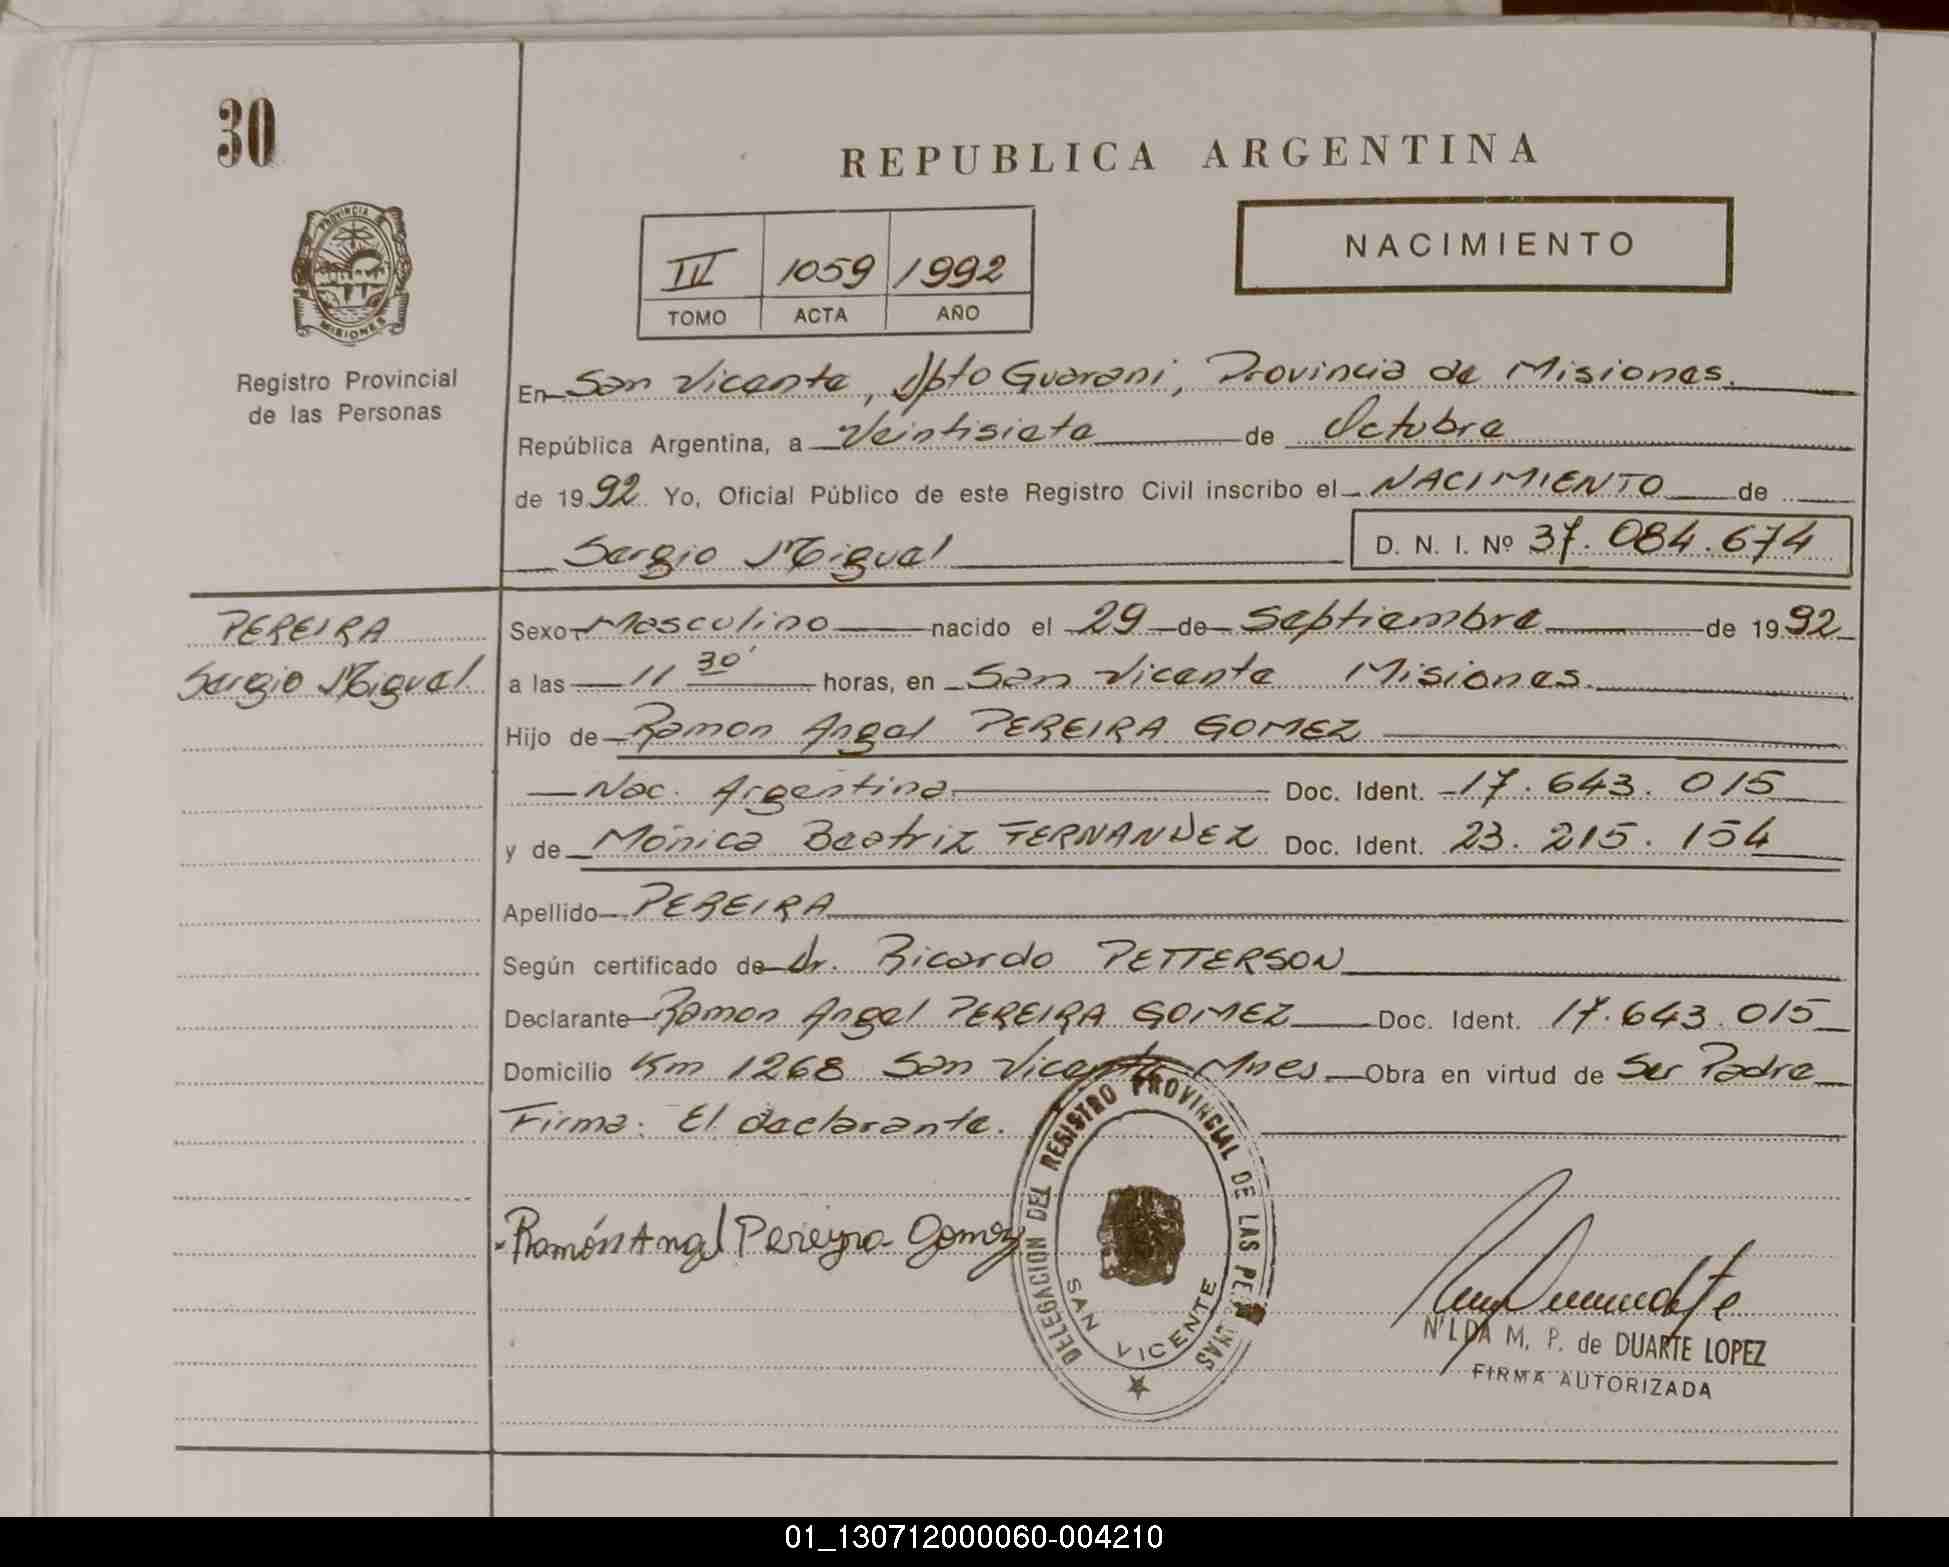 30
REPUBLICA ARGENTINA
NACIMIENTO
PROVINCIA DE
MISIONES
IV 1059 1992
TOMO ACTA AÑO
Registro Provincial
de las Personas
En San Vicente, Dpto Guarani, Provincia de Misiones.
República Argentina, a Veintisiete de Octubre
de 1992. Yo, Oficial Público de este Registro Civil inscribo el NACIMIENTO de
Sergio Miguel D. N. I. Nº 37.084.674
PEREIRA
Sergio Miguel
Sexo Masculino nacido el 29 de Septiembre de 1992
a las 11 30' horas, en San Vicente Misiones.
Hijo de Ramon Angel PEREIRA GOMEZ
Nac. Argentina Doc. Ident. 17.643.015
y de Mónica Beatriz FERNANDEZ Doc. Ident. 23.215.154
Apellido PEREIRA
Según certificado de Dr. Ricardo PETTERSON
Declarante Ramon Angel PEREIRA GOMEZ Doc. Ident. 17.643.015
Domicilio Km 1268 San Vicente Mnes. Obra en virtud de Ser Padre
Firma: El declarante.
Ramón Angel Pereyra Gomez
DELEGACION DEL REGISTRO PROVINCIAL DE LAS PERSONAS
SAN VICENTE
NILDA M. P. de DUARTE LOPEZ
FIRMA AUTORIZADA
01_130712000060-004210